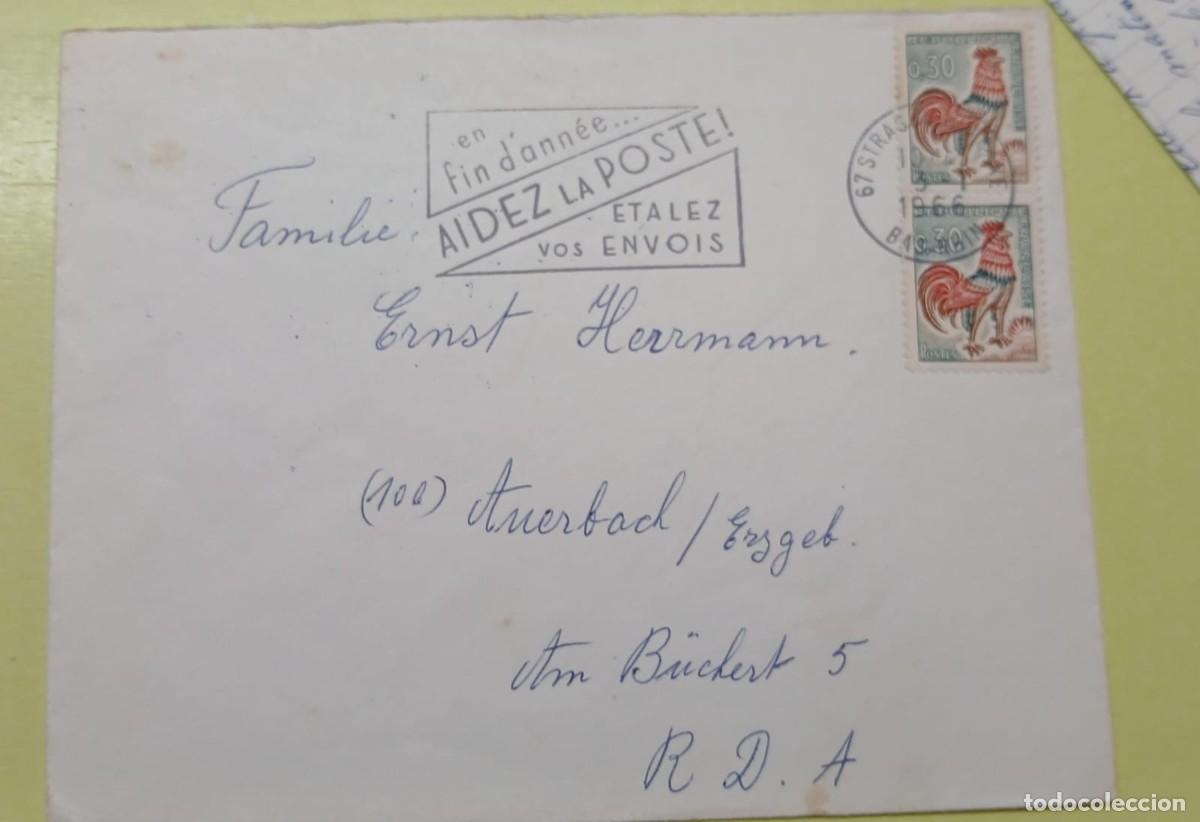 en
fin d'année...
AIDEZ LA POSTE!
ETALEZ
VOS ENVOIS
0,30
POSTES
67 STRAS
1966
BAS RHIN
0,30
POSTES
Familie
Ernst Herrmann.
(10a) Auerbach / Erzgeb.
Am Büchert 5
R D. A
todocoleccion